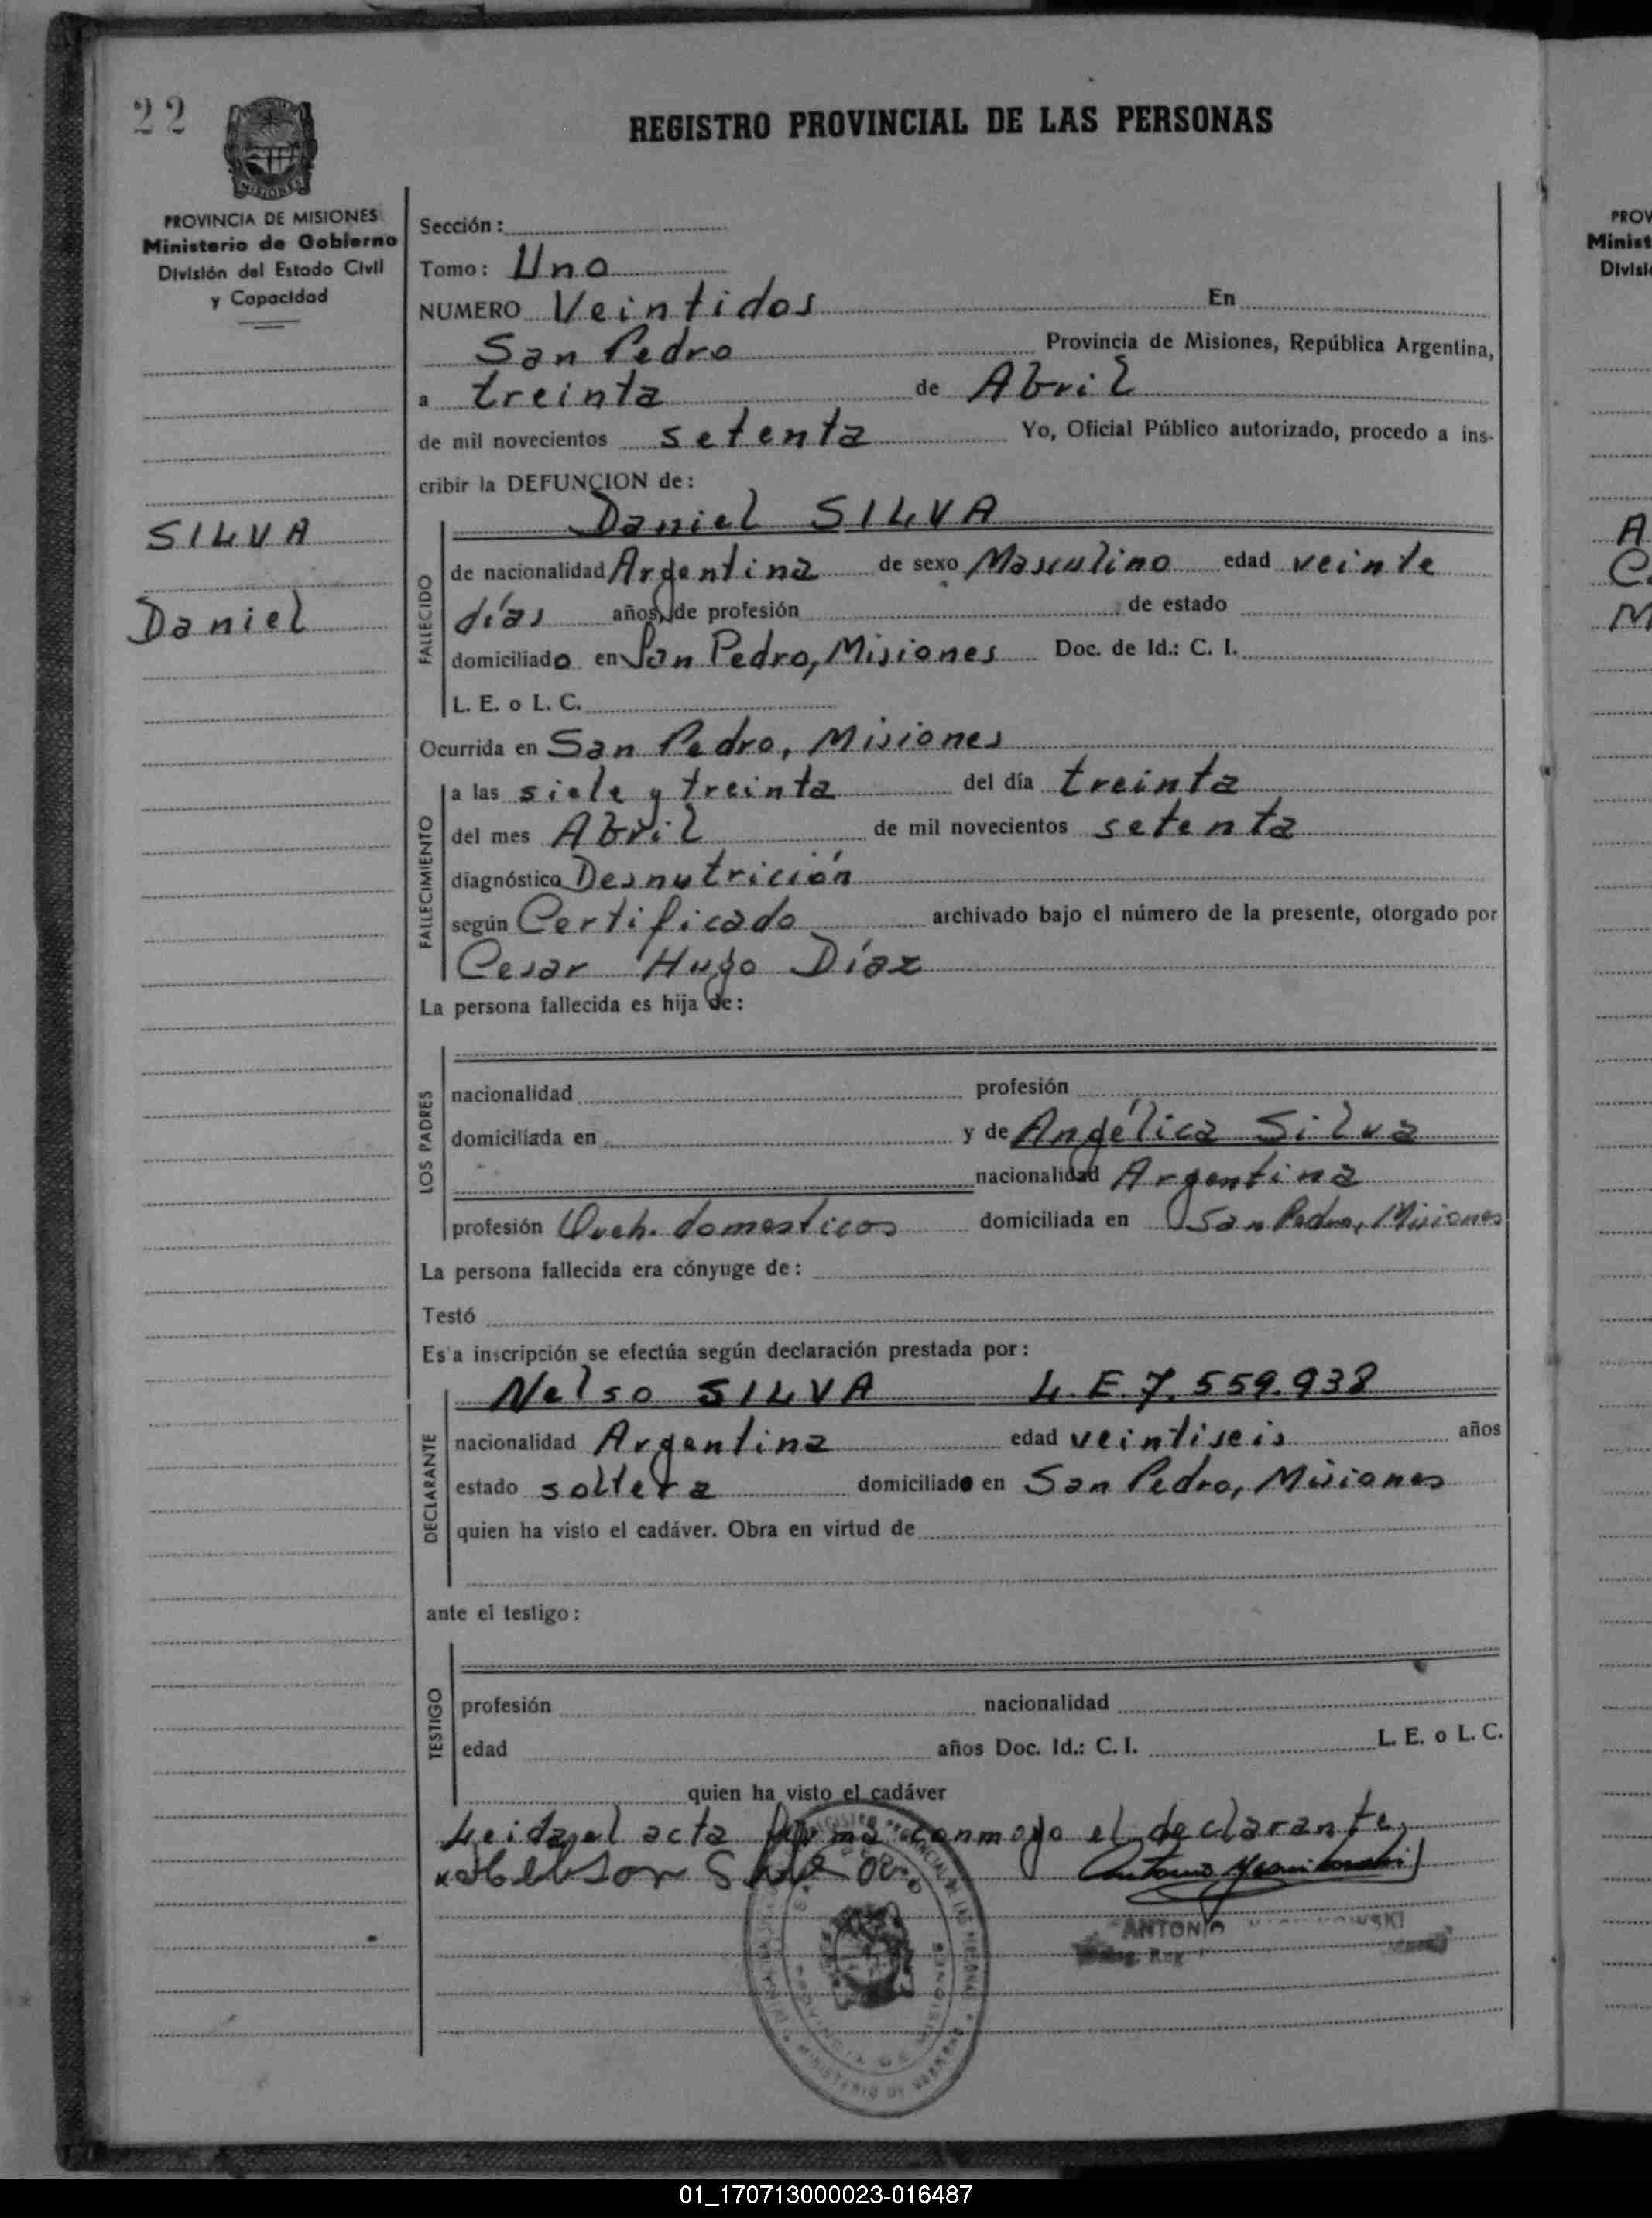 22
REGISTRO PROVINCIAL DE LAS PERSONAS
MISIONES
PROVINCIA DE MISIONES
Ministerio de Gobierno
División del Estado Civil
y Capacidad
SILVA
Daniel
Sección:
Tomo: Uno
NUMERO Veintidos En
San Pedro Provincia de Misiones, República Argentina,
a treinta de Abril
de mil novecientos setenta Yo, Oficial Público autorizado, procedo a ins-
cribir la DEFUNCION de:
Daniel SILVA
FALLECIDO
de nacionalidad Argentina de sexo Masculino edad veinte
días años, de profesión de estado
domiciliado en San Pedro, Misiones Doc. de Id.: C. I.
L. E. o L. C.
Ocurrida en San Pedro, Misiones
FALLECIMIENTO
a las siete y treinta del día treinta
del mes Abril de mil novecientos setenta
diagnóstico Desnutrición
según Certificado archivado bajo el número de la presente, otorgado por
Cesar Hugo Díaz
La persona fallecida es hija de:
LOS PADRES
nacionalidad profesión
domiciliada en y de Angélica Silva
nacionalidad Argentina
profesión Queh. domesticos domiciliada en San Pedro, Misiones
La persona fallecida era cónyuge de:
Testó
Es a inscripción se efectúa según declaración prestada por:
Nelso SILVA L. E. 7.559.938
DECLARANTE
nacionalidad Argentina edad veintiseis años
estado soltera domiciliado en San Pedro, Misiones
quien ha visto el cadáver. Obra en virtud de
ante el testigo:
TESTIGO
profesión nacionalidad
edad años Doc. Id.: C. I. L. E. o L. C.
quien ha visto el cadáver
Leida el acta firma conmogo el declarante,
ANTONIO
PROV
Minist
Divisi
A
C
M
01_170713000023-016487